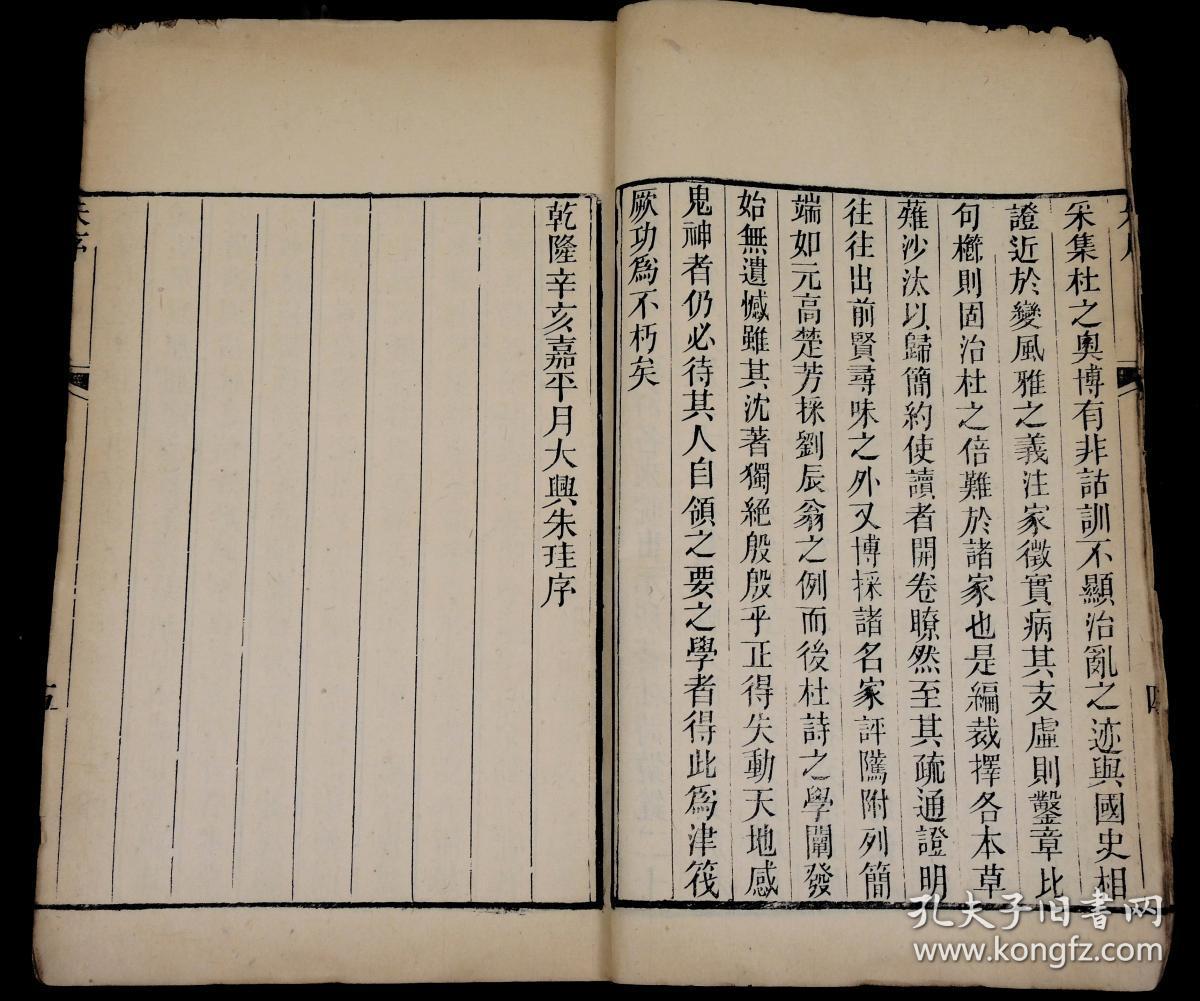 采集杜之奧博有非詁訓不顯治亂之迹與國史相
證近於變風雅之義注家徵實病其支虛則鑿章比
句櫛則固治杜之倍難於諸家也是編裁擇各本草
薙沙汰以歸簡約使讀者開卷瞭然至其疏通證明
往往出前賢尋味之外又博採諸名家評隲附列簡
端如元高楚芳採劉辰翁之例而後杜詩之學闡發
始無遺憾雖其沈著獨絕殷殷乎正得失動天地感
鬼神者仍必待其人自領之要之學者得此爲津筏
厥功爲不朽矣
乾隆辛亥嘉平月大興朱珪序
五
孔夫子旧书网
www.kongfz.com